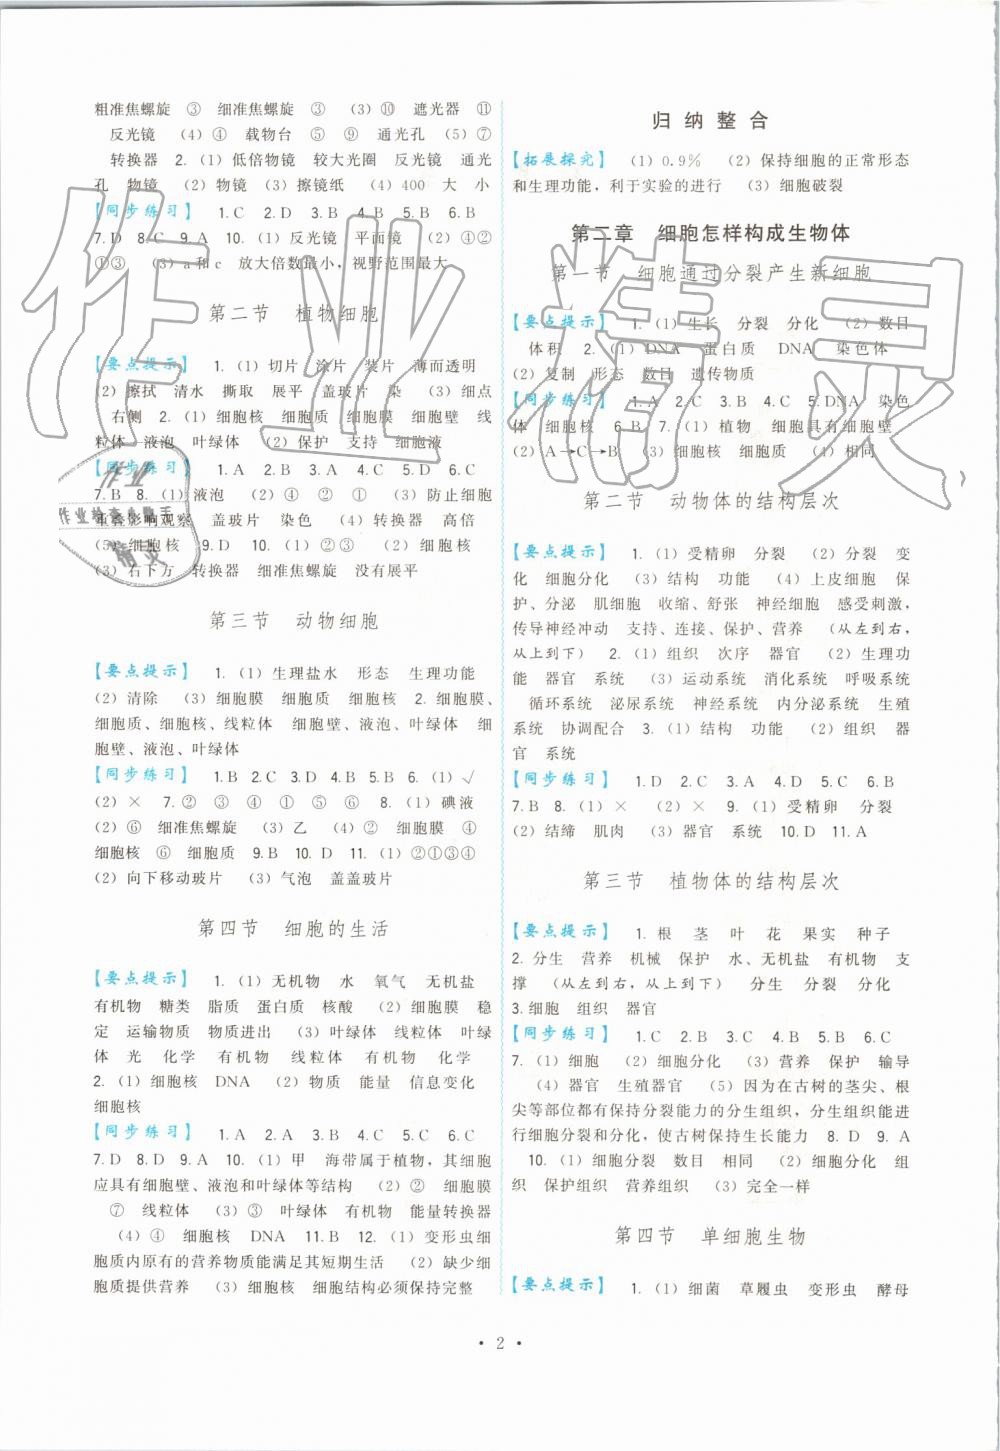 粗准焦螺旋 ③ 细准焦螺旋 ③ (3)⑩ 遮光器 ⑪
反光镜 (4)④ 载物台 ⑤ ⑨ 通光孔 (5)⑦
转换器 2.(1)低倍物镜 较大光圈 反光镜 通光
孔 物镜 (2)物镜 (3)擦镜纸 (4)400 大 小
【同步练习】 1.C 2.D 3.B 4.A 5.B 6.B
7.D 8.C 9.A 10.(1)反光镜 平面镜 (2)④②
①③ (3)a和c 放大倍数最小,视野范围最大
第二节 植物细胞
【要点提示】 1.(1)切片 涂片 装片 薄而透明
(2)擦拭 清水 撕取 展平 盖玻片 染 (3)细点
右侧 2.(1)细胞核 细胞质 细胞膜 细胞壁 线
粒体 液泡 叶绿体 (2)保护 支持 细胞液
【同步练习】 1.A 2.B 3.A 4.C 5.D 6.C
7.B 8.(1)液泡 (2)④ ② ① (3)防止细胞
重叠影响观察 盖玻片 染色 (4)转换器 高倍
(5)细胞核 9.D 10.(1)②③ (2)细胞核
(3)右下方 转换器 细准焦螺旋 没有展平
第三节 动物细胞
【要点提示】 1.(1)生理盐水 形态 生理功能
(2)清除 (3)细胞膜 细胞质 细胞核 2.细胞膜、
细胞质、细胞核、线粒体 细胞壁、液泡、叶绿体 细
胞壁、液泡、叶绿体
【同步练习】 1.B 2.C 3.A 4.B 5.B 6.(1)√
(2)× 7.② ③ ④ ① ⑤ ⑥ 8.(1)碘液
(2)⑥ 细准焦螺旋 (3)乙 (4)② 细胞膜 ④
细胞核 ⑥ 细胞质 9.B 10.D 11.(1)②①③④
(2)向下移动玻片 (3)气泡 盖盖玻片
第四节 细胞的生活
【要点提示】 1.(1)无机物 水 氧气 无机盐
有机物 糖类 脂质 蛋白质 核酸 (2)细胞膜 稳
定 运输物质 物质进出 (3)叶绿体 线粒体 叶绿
体 光 化学 有机物 线粒体 有机物 化学
2.(1)细胞核 DNA (2)物质 能量 信息变化
细胞核
【同步练习】 1.A 2.A 3.B 4.C 5.C 6.C
7.D 8.D 9.A 10.(1)甲 海带属于植物,其细胞
应具有细胞壁、液泡和叶绿体等结构 (2)② 细胞膜
⑦ 线粒体 (3)③ 叶绿体 有机物 能量转换器
(4)④ 细胞核 DNA 11.B 12.(1)变形虫细
胞质内原有的营养物质能满足其短期生活 (2)缺少细
胞质提供营养 (3)细胞核 细胞结构必须保持完整
归纳整合
【拓展探究】 (1)0.9% (2)保持细胞的正常形态
和生理功能,利于实验的进行 (3)细胞破裂
第二章 细胞怎样构成生物体
第一节 细胞通过分裂产生新细胞
【要点提示】 1.(1)生长 分裂 分化 (2)数目
体积 2.(1)DNA 蛋白质 DNA 染色体
(2)复制 形态 数目 遗传物质
【同步练习】 1.A 2.C 3.B 4.C 5.DNA 染色
体 细胞核 6.B 7.(1)植物 细胞具有细胞壁
(2)A→C→B (3)细胞核 细胞质 (4)相同
第二节 动物体的结构层次
【要点提示】 1.(1)受精卵 分裂 (2)分裂 变
化 细胞分化 (3)结构 功能 (4)上皮细胞 保
护、分泌 肌细胞 收缩、舒张 神经细胞 感受刺激,
传导神经冲动 支持、连接、保护、营养 (从左到右,
从上到下) 2.(1)组织 次序 器官 (2)生理功
能 器官 系统 (3)运动系统 消化系统 呼吸系统
循环系统 泌尿系统 神经系统 内分泌系统 生殖
系统 协调配合 3.(1)结构 功能 (2)组织 器
官 系统
【同步练习】 1.D 2.C 3.A 4.D 5.C 6.B
7.B 8.(1)× (2)× 9.(1)受精卵 分裂
(2)结缔 肌肉 (3)器官 系统 10.D 11.A
第三节 植物体的结构层次
【要点提示】 1.根 茎 叶 花 果实 种子
2.分生 营养 机械 保护 水、无机盐 有机物 支
撑 (从左到右,从上到下) 分生 分裂 分化
3.细胞 组织 器官
【同步练习】 1.C 2.B 3.C 4.D 5.B 6.C
7.(1)细胞 (2)细胞分化 (3)营养 保护 输导
(4)器官 生殖器官 (5)因为在古树的茎尖、根
尖等部位都有保持分裂能力的分生组织,分生组织能进
行细胞分裂和分化,使古树保持生长能力 8.D 9.A
10.(1)细胞分裂 数目 相同 (2)细胞分化 组
织 保护组织 营养组织 (3)完全一样
第四节 单细胞生物
【要点提示】 1.(1)细菌 草履虫 变形虫 酵母
· 2 ·
作业精灵
作业
作业检查小助手
精灵